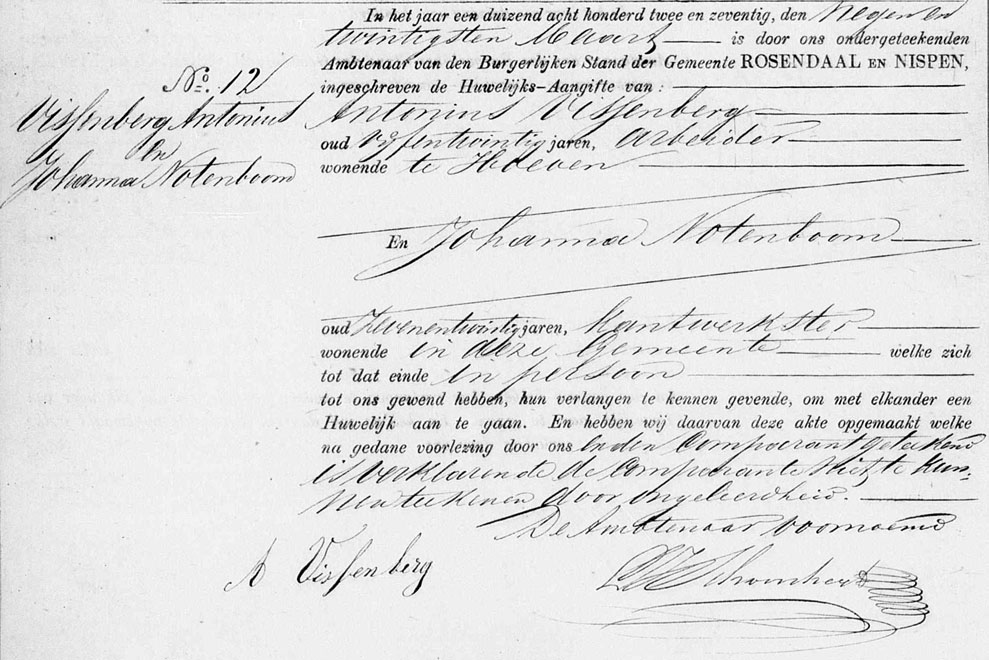 In het jaar een duizend acht honderd twee en zeventig, den Negen en
twintigsten Maart is door ons ondergeteekenden
Ambtenaar van den Burgerlijken Stand der Gemeente ROSENDAAL EN NISPEN,
ingeschreven de Huwelijks-Aangifte van:
No. 12
Vissenberg Antonius
en
Johanna Notenboom
Antonius Vissenberg
oud vyfentwintig jaren, arbeider
wonende te Hoeven
En Johanna Notenboom
oud Zevenentwintig jaren, kantwerkster
wonende in deze Gemeente welke zich
tot dat einde in persoon
tot ons gewend hebben, hun verlangen te kennen gevende, om met elkander een
Huwelijk aan te gaan. En hebben wij daarvan deze akte opgemaakt welke
na gedane voorlezing door ons en den Comparant geteekend
is verklarende de Comparante niet te kun-
nen teekenen door ongeleerdheid.
De Ambtenaar voornoemd
A Vissenberg